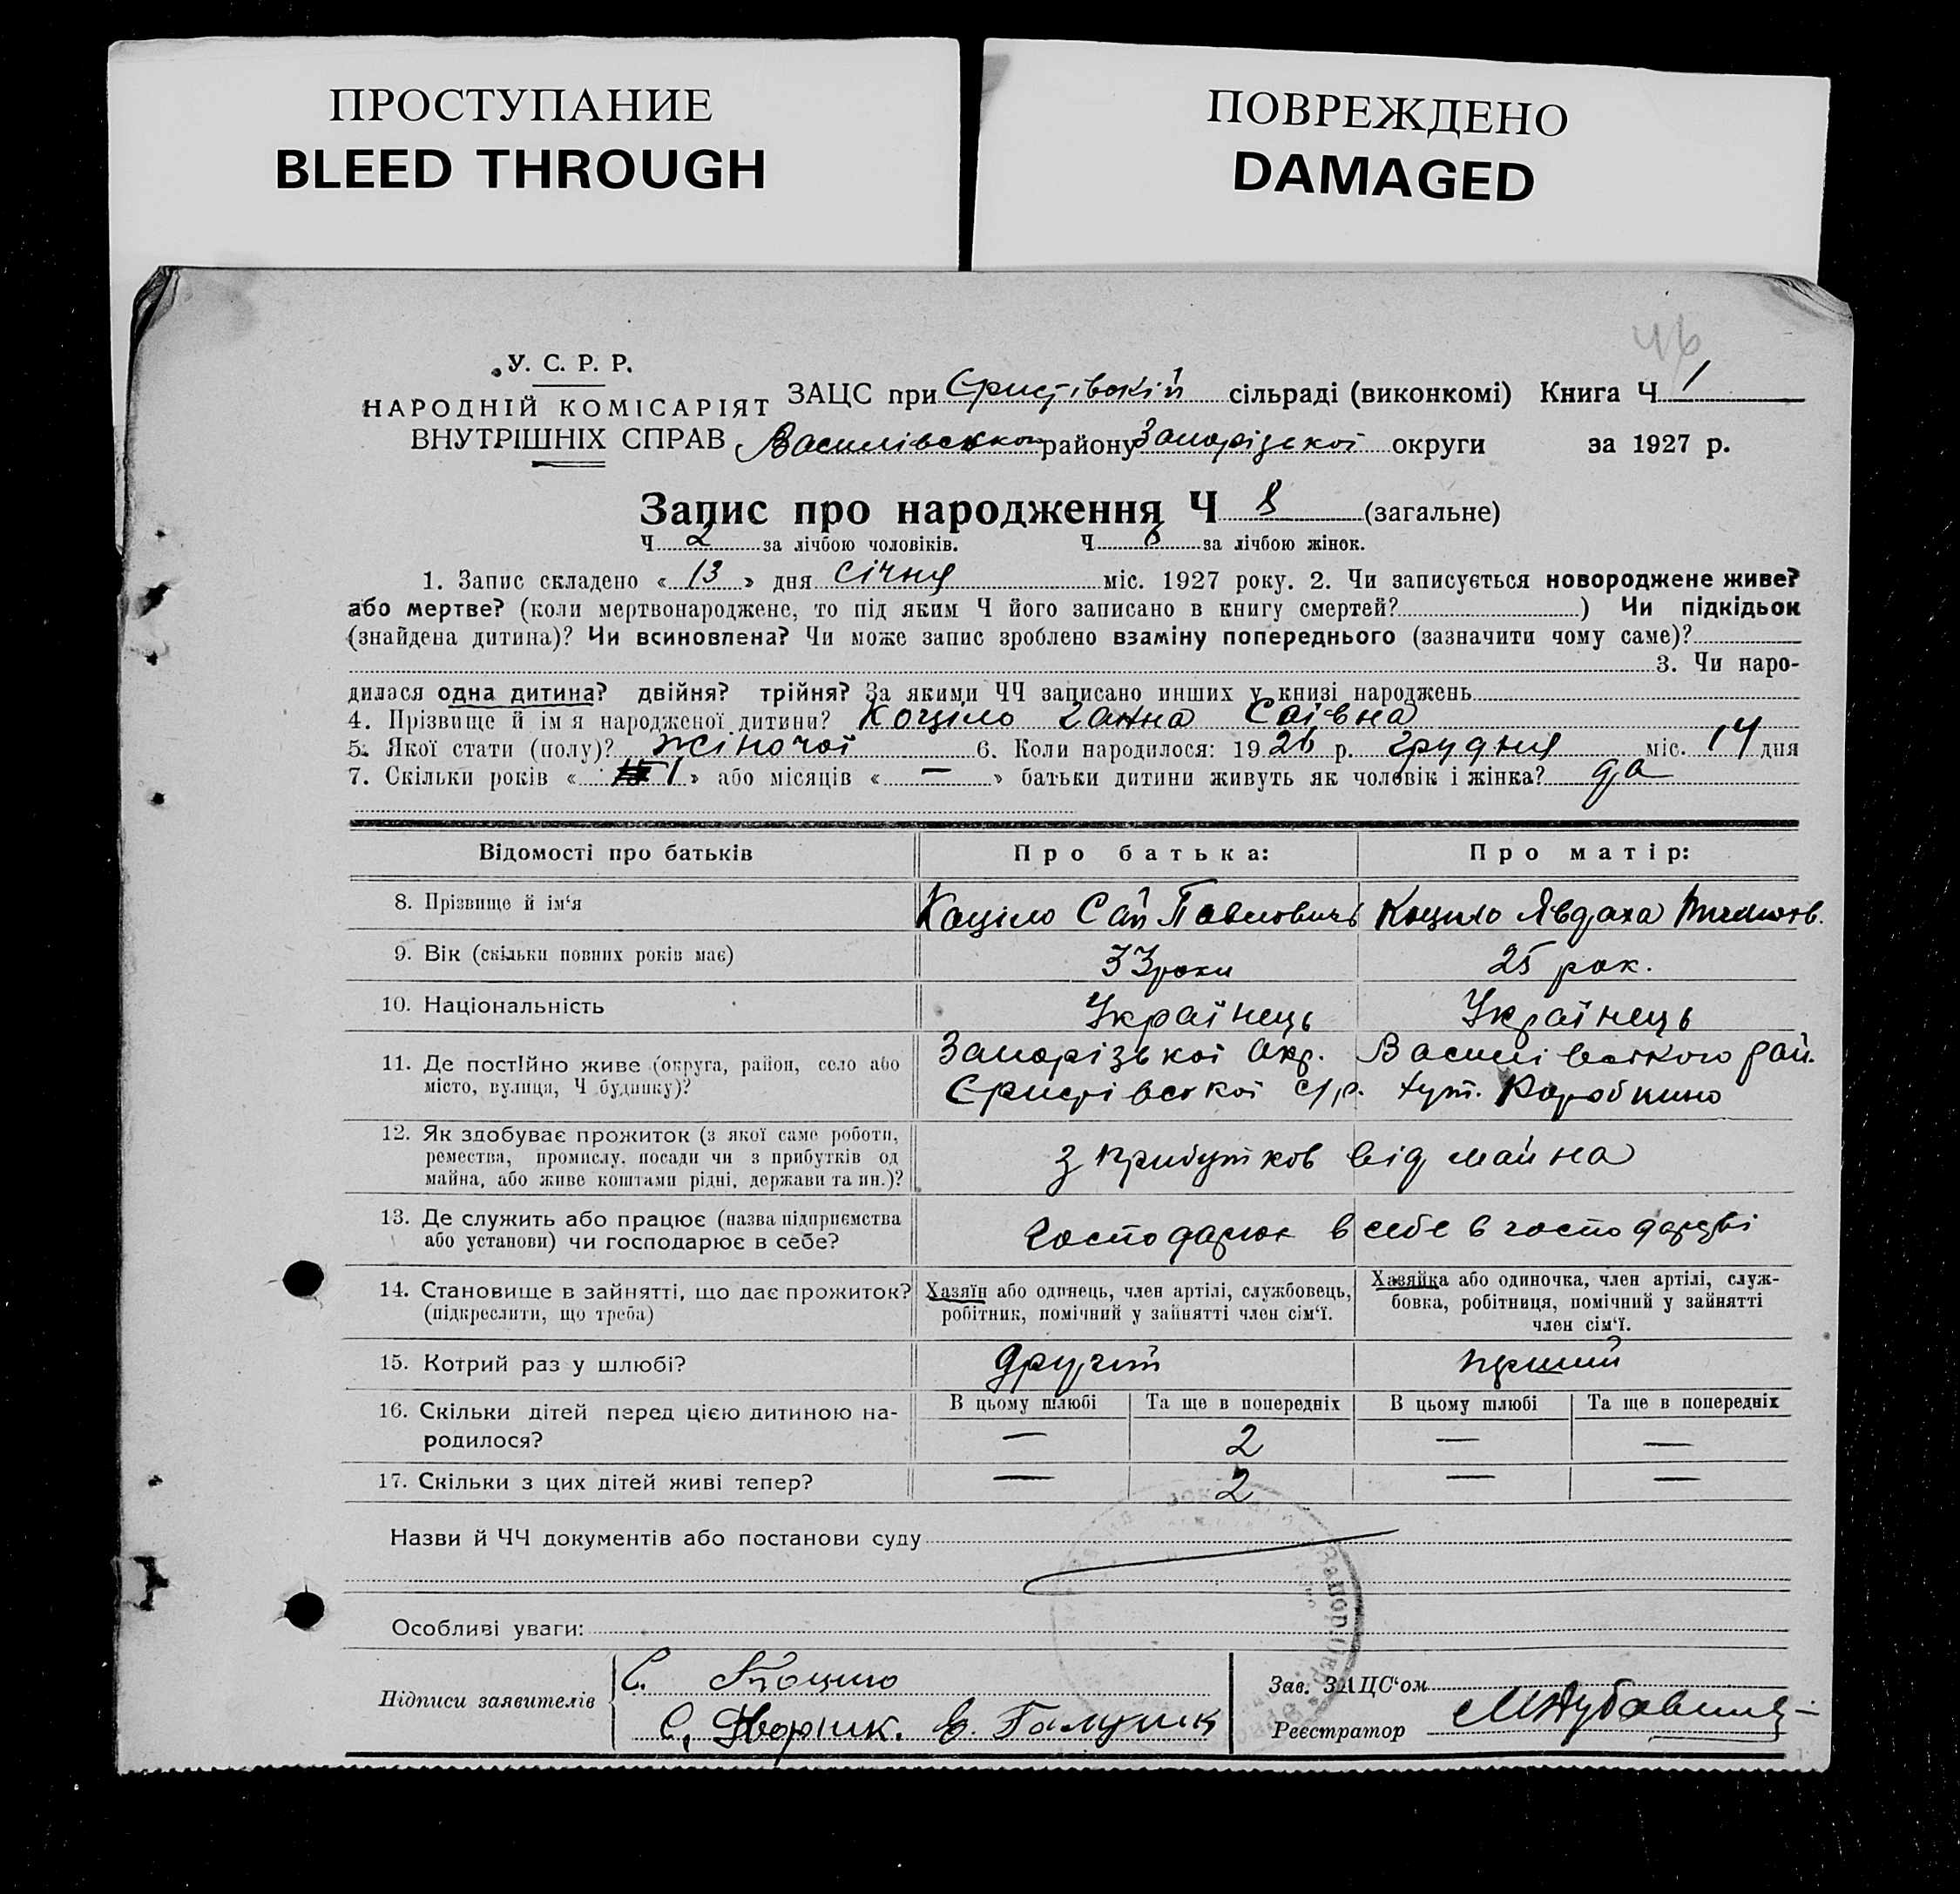 ПРОСТУПАНИЕ
BLEED THROUGH
ПОВРЕЖДЕНО
DAMAGED
46
У. С. Р. Р.
НАРОДНІЙ КОМІСАРІЯТ
ВНУТРІШНІХ СПРАВ
ЗАЦС при сільраді (виконкомі) Книга Ч 1
району Запорізької округи за 1927 р.
Запис про народження Ч 8 (загальне)
Ч 2 за лічбою чоловіків. Ч за лічбою жінок.
1. Запис складено « 13 » дня січня міс. 1927 року. 2. Чи записується новороджене живе?
або мертве? (коли мертвонароджене, то під яким Ч його записано в книгу смертей? ) Чи підкідьок
(знайдена дитина)? Чи всиновлена? Чи може запис зроблено взаміну попереднього (зазначити чому саме)?
3. Чи наро-
дилася одна дитина? двійня? трійня? За якими ЧЧ записано инших у книзі народжень
4. Прізвище й імя народженої дитини? Коціло Ганна Саівна
5. Якої стати (полу)? жіночої 6. Коли народилося: 1926 р. грудня міс. 14 дня
7. Скільки років « 1 » або місяців « — » батьки дитини живуть як чоловік і жінка? да
Відомості про батьків Про батька: Про матір:
8. Прізвище й ім'я Коціло Сай Павлович Коцило Явдаха
9. Вік (скільки повних років має) 33 роки 25 рок.
10. Національність Українець Українець
11. Де постІйно живе (округа, район, село або Запорізької Окр. Василівського рай.
місто, вулиця, Ч будинку)? с/р. хут. Коробкино
12. Як здобуває прожиток (з якої саме роботи,
ремества, промислу, посади чи з прибутків од з прибутков від майна
майна, або живе коштами рідні, держави та ин.)?
13. Де служить або працює (назва підприємства
або установи) чи господарює в себе? в себе в господарстві
14. Становище в зайнятті, що дає прожиток? Хазяїн або одинець, член артілі, службовець, Хазяйка або одиночка, член артілі, служ-
(підкреслити, що треба) робітник, помічний у зайнятті член сім'ї. бовка, робітниця, помічний у зайнятті
член сім'ї.
15. Котрий раз у шлюбі? другий перший
16. Скільки дітей перед цією дитиною на- В цьому шлюбі Та ще в попередніх В цьому шлюбі Та ще в попередніх
родилося? — 2 — —
17. Скільки з цих дітей живі тепер? — 2 — —
Назви й ЧЧ документів або постанови суду
Особливі уваги:
Підписи заявителів С. Коцило
С. Дворник.
Зав. ЗАЦС'ом
Реєстратор